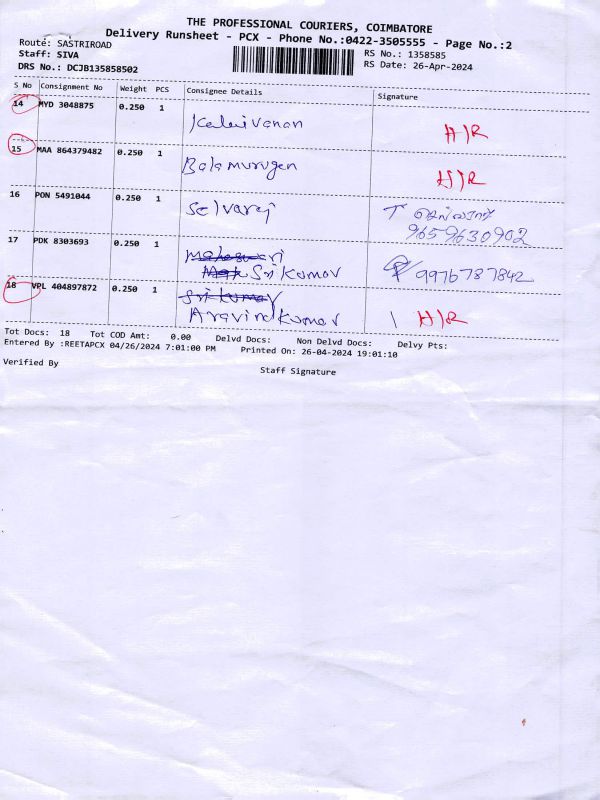 THE PROFESSIONAL COURIERS, COIMBATORE
Delivery Runsheet - PCX - Phone No.:0422-3505555 - Page No.:2
Route: SASTRIROAD RS No.: 1358585
Staff: SIVA RS Date: 26-Apr-2024
DRS No.: DCJB135858502
S No Consignment No Weight PCS Consignee Details Signature
14 MYD 3048875 0.250 1 Kalaivanan H/R
15 MAA 864379482 0.250 1 Balamurugan H/R
16 PON 5491044 0.250 1 Selvaraj
9659630902
17 PDK 8303693 0.250 1
Sri Kumar 9976787842
18 VPL 404897872 0.250 1 Sri Kumar
Aravind Kumar H/R
Tot Docs: 18 Tot COD Amt: 0.00 Delvd Docs: Non Delvd Docs: Delvy Pts:
Entered By :REETAPCX 04/26/2024 7:01:00 PM Printed On: 26-04-2024 19:01:10
Verified By
Staff Signature